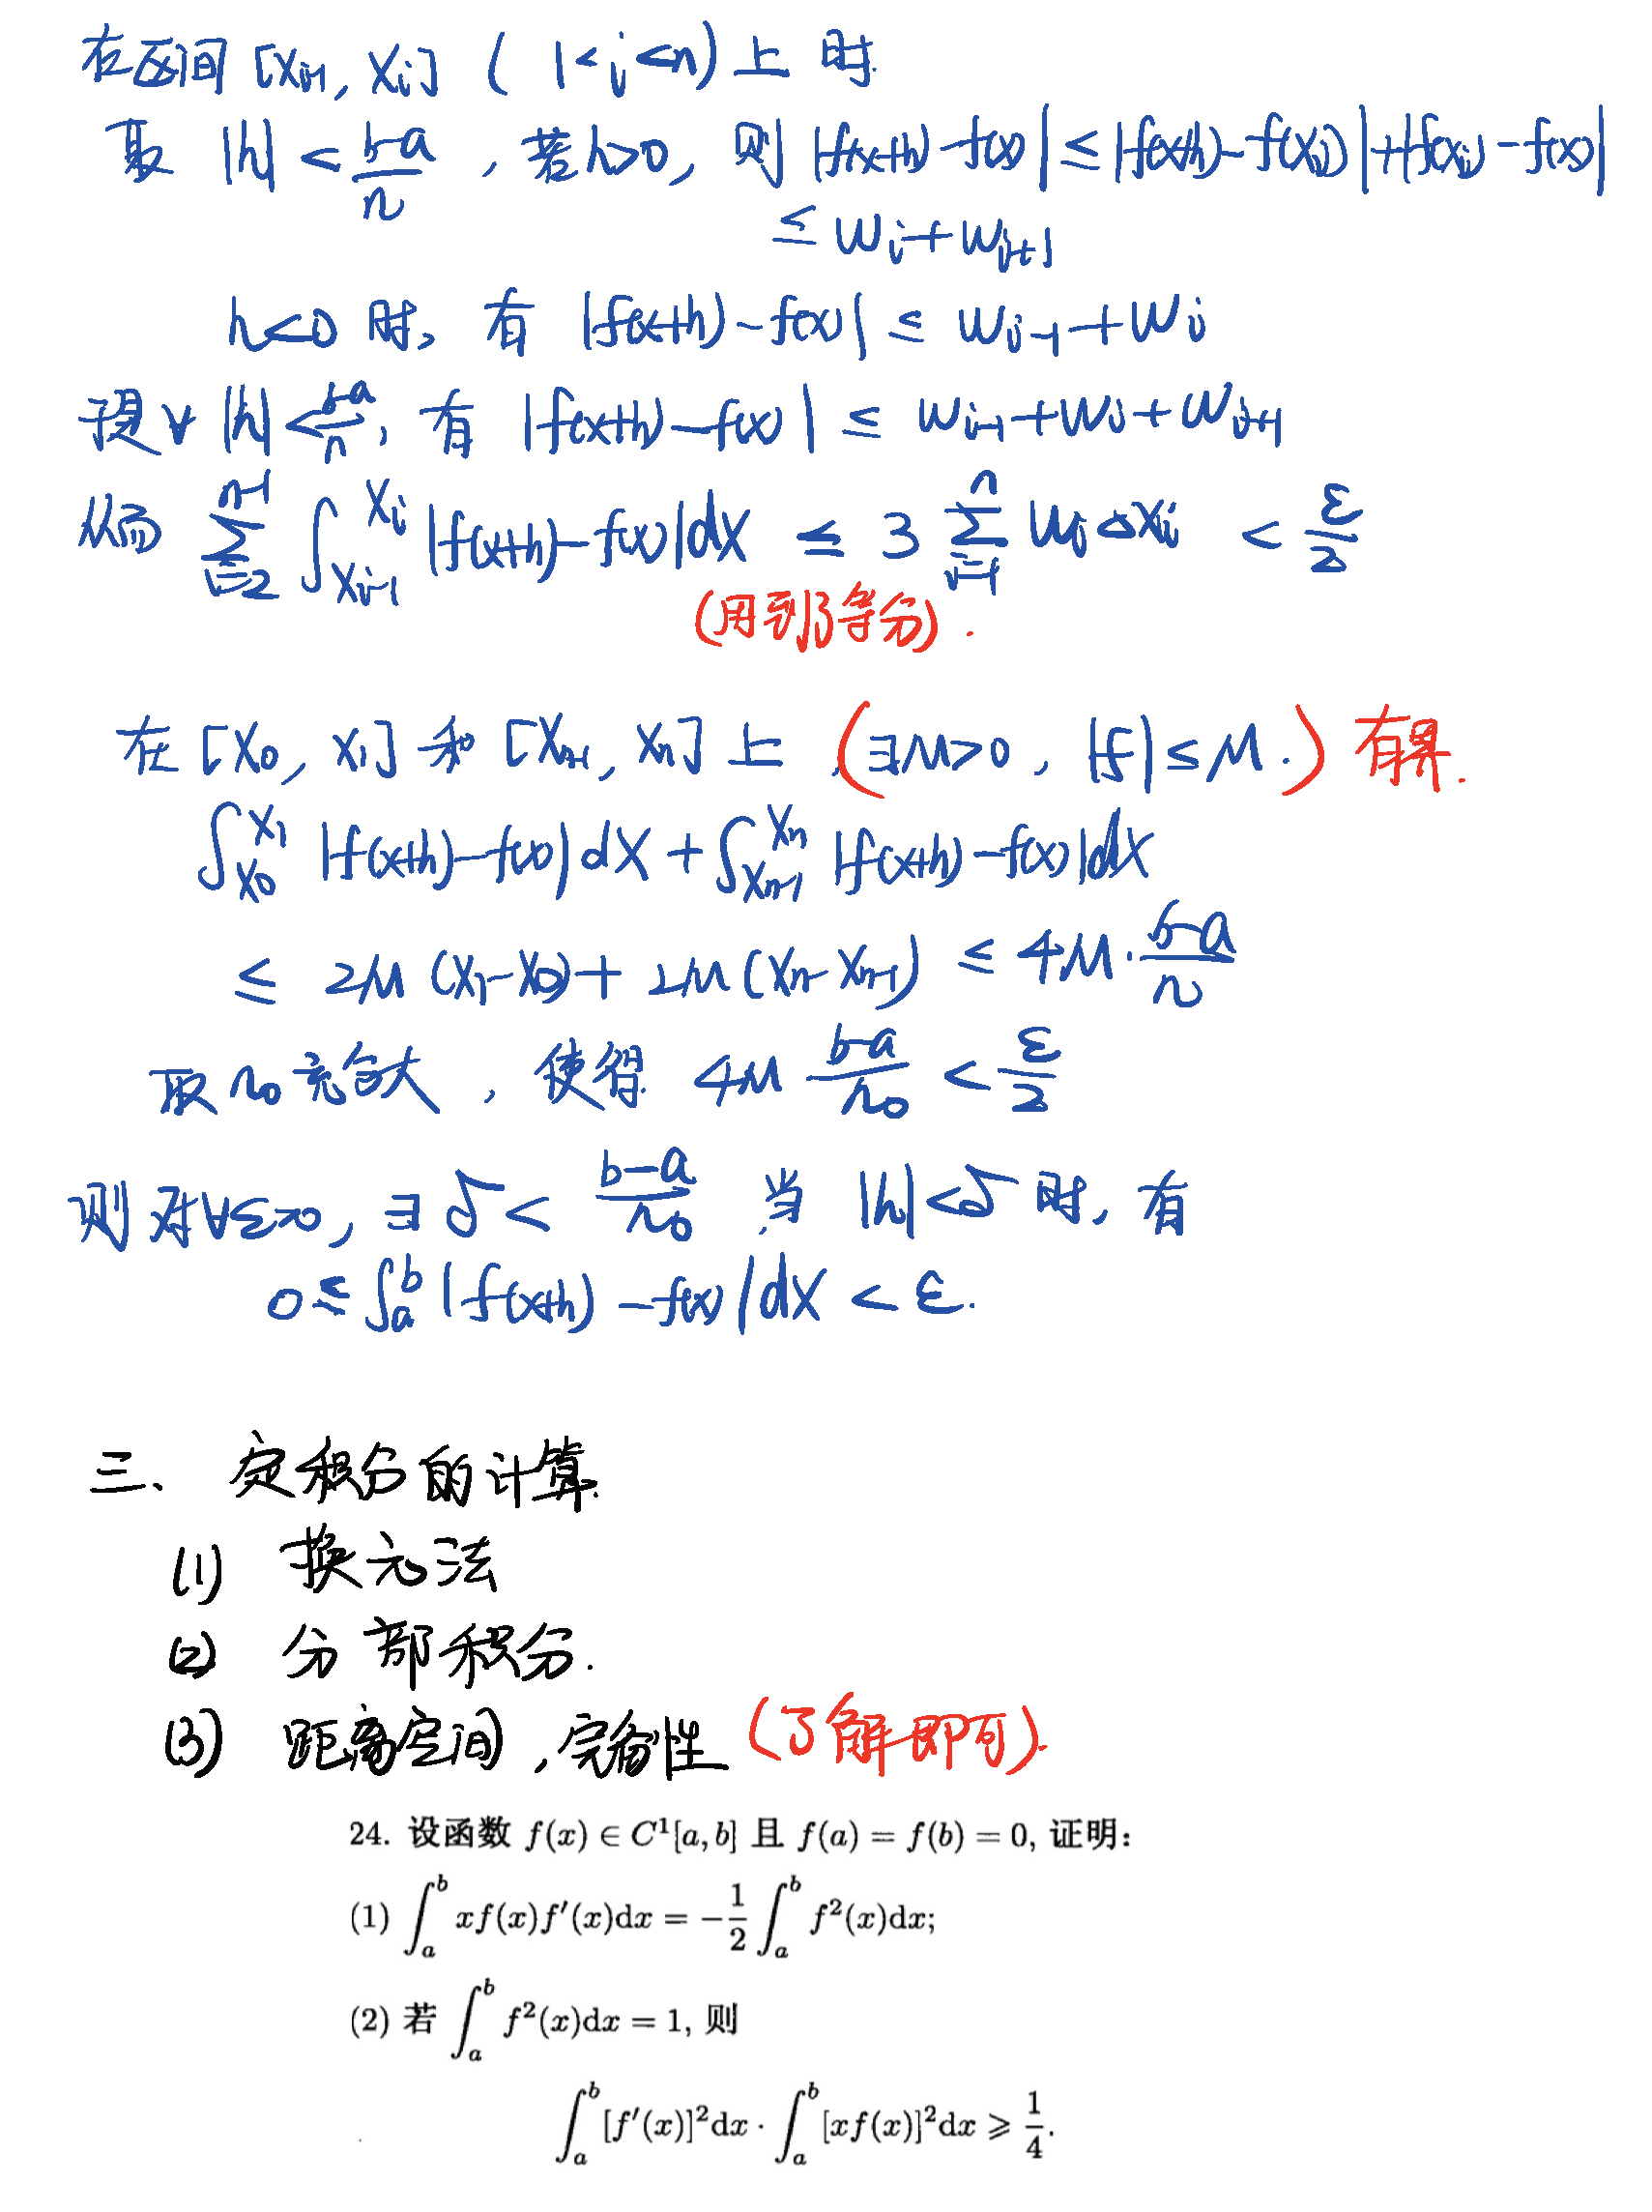 在区间 [x_{i-1}, x_i] (1<i<n) 上时.
取 |h| < \frac{b-a}{n}, 若h>0, 则 |f(x+h)-f(x)| ≤ |f(x+h)-f(x_i)|+|f(x_i)-f(x)|
≤ w_i+w_{i+1}
h<0 时, 有 |f(x+h)-f(x)| ≤ w_{i-1}+w_i
于是∀ |h|<\frac{b-a}{n}, 有 |f(x+h)-f(x)| ≤ w_{i-1}+w_i+w_{i+1}
从而 \sum_{i=2}^{n-1} \int_{x_{i-1}}^{x_i} |f(x+h)-f(x)|dx ≤ 3 \sum_{i=1}^{n} w_i Δx_i < \frac{ε}{2}
(用到了等分).
在 [x_0, x_1] 和 [x_{n-1}, x_n] 上 (∃M>0, |f|≤M.) 有界.
\int_{x_0}^{x_1} |f(x+h)-f(x)|dx + \int_{x_{n-1}}^{x_n} |f(x+h)-f(x)|dx
≤ 2M(x_1-x_0)+2M(x_n-x_{n-1}) ≤ 4M·\frac{b-a}{n}
取 n_0 充分大, 使得 4M \frac{b-a}{n_0} < \frac{ε}{2}
则对∀ε>0, ∃δ< \frac{b-a}{n_0}, 当 |h|<δ 时, 有
0≤\int_a^b |f(x+h)-f(x)|dx < ε.
三、定积分的计算.
(1) 换元法
(2) 分部积分.
(3) 距离空间, 完备性 (了解即可).
24. 设函数 f(x) ∈ C^1[a, b] 且 f(a) = f(b) = 0, 证明:
(1) \int_a^b xf(x)f'(x)dx = -\frac{1}{2} \int_a^b f^2(x)dx;
(2) 若 \int_a^b f^2(x)dx = 1, 则
\int_a^b [f'(x)]^2dx · \int_a^b [xf(x)]^2dx ⩾ \frac{1}{4}.